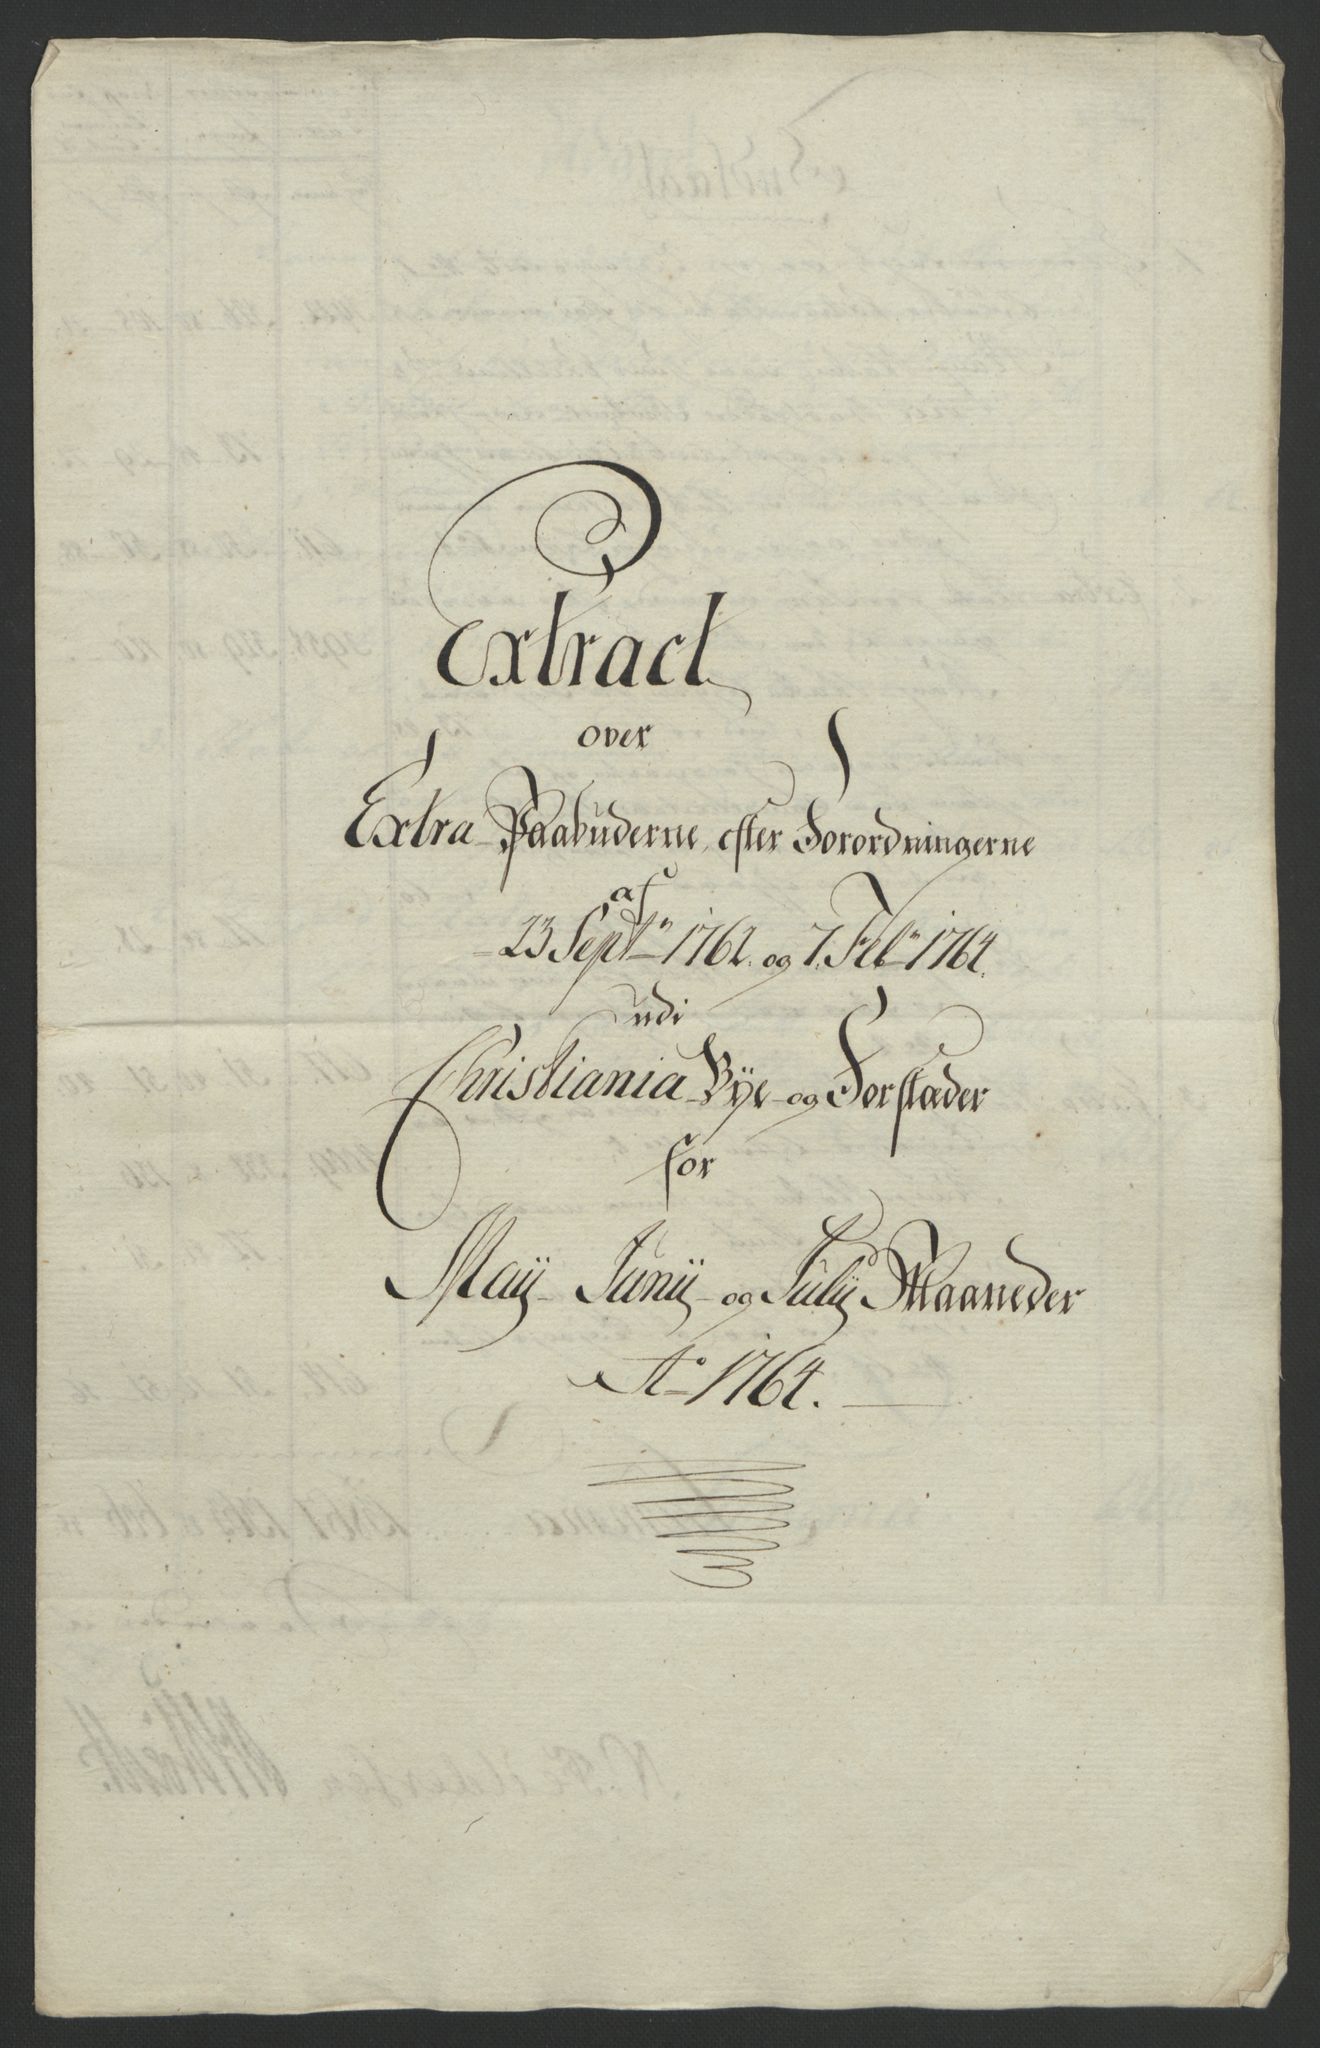 Extract
over
Extra Paabuderne, efter Forordningerne
af
23 Septr 1762. og 7. Febr 1764.
udi
Christiania Bÿe og Forstæder
for
Maÿ Junÿ og Julÿ Maaneder
Ao 1764.